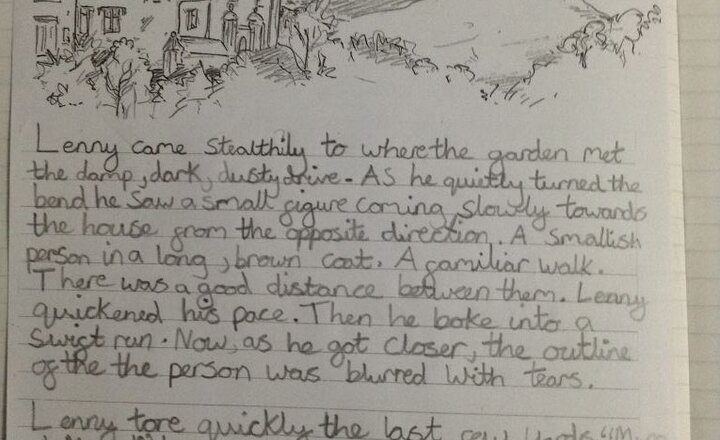 Lenny came stealthily to where the garden met
the damp, dark, dusty drive. As he quietly turned the
bend he saw a small figure coming, slowly towards
the house from the opposite direction. A smallish
person in a long, brown coat. A familiar walk.
There was a good distance between them. Lenny
quickened his pace. Then he boke into a
swift run. Now, as he got closer, the outline
of the the person was blurred with tears.
Lenny tore quickly the last few